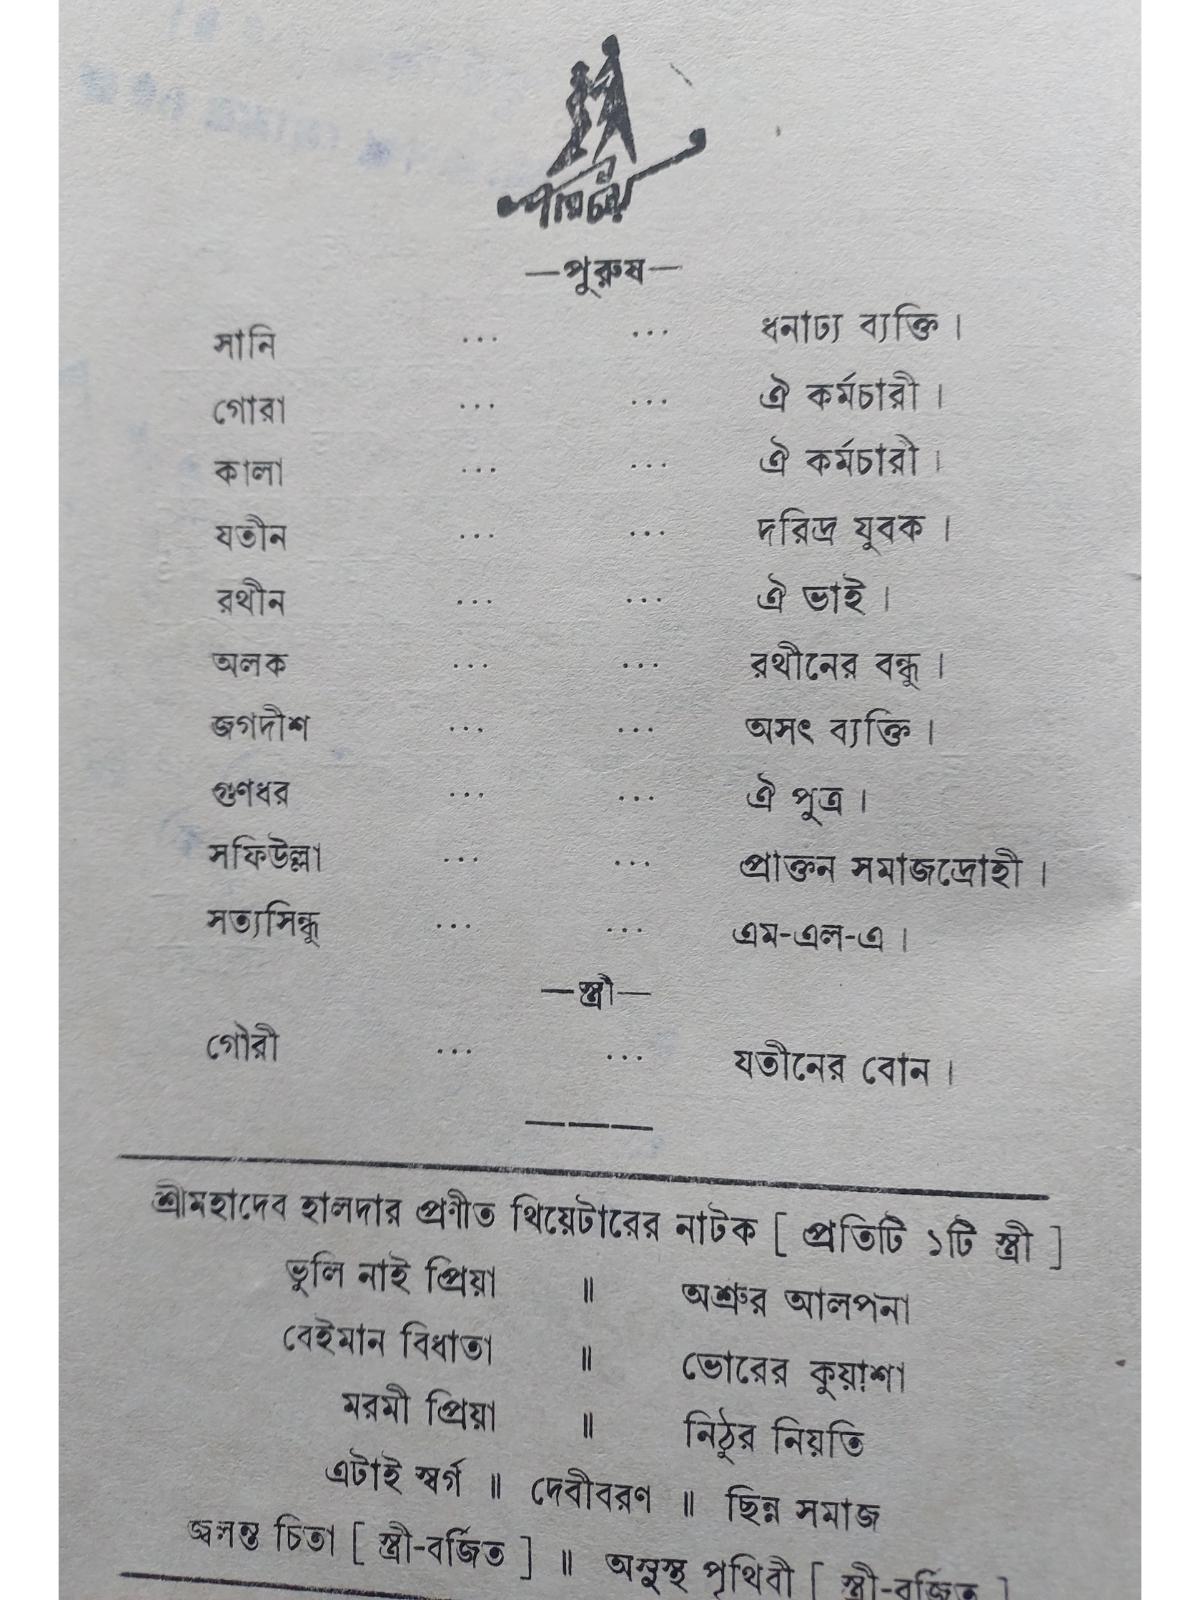 পরিচয়
—পুরুষ—
সানি ... ... ধনাঢ্য ব্যক্তি ।
গোরা ... ... ঐ কর্মচারী ।
কালা ... ... ঐ কর্মচারী ।
যতীন ... ... দরিদ্র যুবক ।
রথীন ... ... ঐ ভাই ।
অলক ... ... রথীনের বন্ধু ।
জগদীশ ... ... অসৎ ব্যক্তি ।
গুণধর ... ... ঐ পুত্র ।
সফিউল্লা ... ... প্রাক্তন সমাজদ্রোহী ।
সত্যসিন্ধু ... ... এম-এল-এ ।
—স্ত্রী—
গৌরী ... ... যতীনের বোন ।
শ্রীমহাদেব হালদার প্রণীত থিয়েটারের নাটক [ প্রতিটি ১টি স্ত্রী ]
ভুলি নাই প্রিয়া ॥ অশ্রুর আলপনা
বেইমান বিধাতা ॥ ভোরের কুয়াশা
মরমী প্রিয়া ॥ নিঠুর নিয়তি
এটাই স্বর্গ ॥ দেবীবরণ ॥ ছিন্ন সমাজ
জ্বলন্ত চিতা [ স্ত্রী-বর্জিত ] ॥ অসুস্থ পৃথিবী [ স্ত্রী-বর্জিত ]